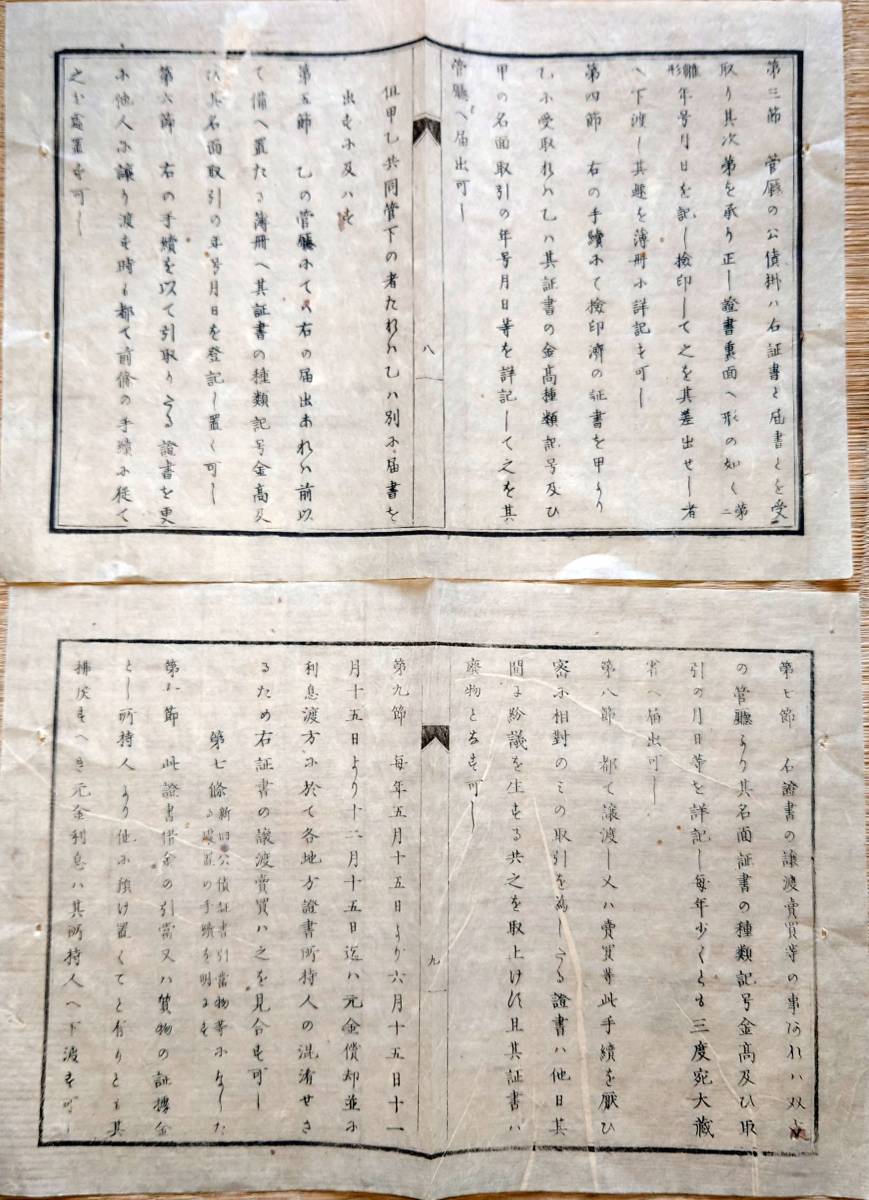 第三節　管廳の公債掛ハ右証書と届書とを受
取り其次第を承り正し證書裏面へ形の如く第二
雛形年号月日を記し檢印して之を其差出せし者
へ下渡し其趣を簿冊に詳記す可し
第四節　右の手續にて檢印濟の証書を甲より
乙に受取れハ乙ハ其証書の金高種類記号及ひ
甲の名面取引の年号月日等を詳記して之を其
管廳へ届出可し
但甲乙共同管下の者たれハ乙ハ別に届書を
出すに及ハす
第五節　乙の管廳にてハ右の届出あれハ前以
て備へ置たる簿冊へ其証書の種類記号金高及
ひ其名面取引の年号月日を登記し置く可し
第六節　右の手續を以て引取りたる證書を更
に他人に讓り渡す時も都て前條の手續に従て
之を處置す可し
八
第七節　右證書の讓渡賣買等の事あれハ双方
の管廳より其名面証書の種類記号金高及ひ取
引の月日等を詳記し毎年少くとも三度宛大藏
省へ届出可し
第八節　都て讓渡し又ハ賣買等此手續を厭ひ
密に相對のミの取引を為したる證書ハ他日其
間に紛議を生する共之を取上けす且其証書ハ
廢物となす可し
第九節　毎年五月十五日より六月十五日十一
月十五日より十二月十五日迄ハ元金償却並に
利息渡方に於て各地方證書所持人の混淆せさ
るため右証書の讓渡賣買ハ之を見合す可し
第七條 新旧公債証書引當物等になした
る處置の手續を明にす
第一節　此證書借金の引當又ハ質物の証據金
とし所持人より他に預け置くこと有りとも其
拂戻すへき元金利息ハ其所持人へ下渡す可し
九